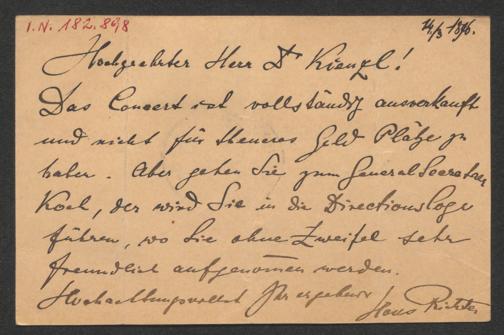 I.N. 182.898
14/3 1896.
Hochgeehrter Herr Dr Kienzl!
Das Concert ist vollständig ausverkauft
und nicht für theueres Geld Plätze zu
haben. Aber gehen Sie zum General Secretär
Koch, der wird Sie in die Directionsloge
führen, wo Sie ohne Zweifel sehr
freundlich aufgenomen werden.
Hochachtungsvollst Ihr ergebener
Hans Richter